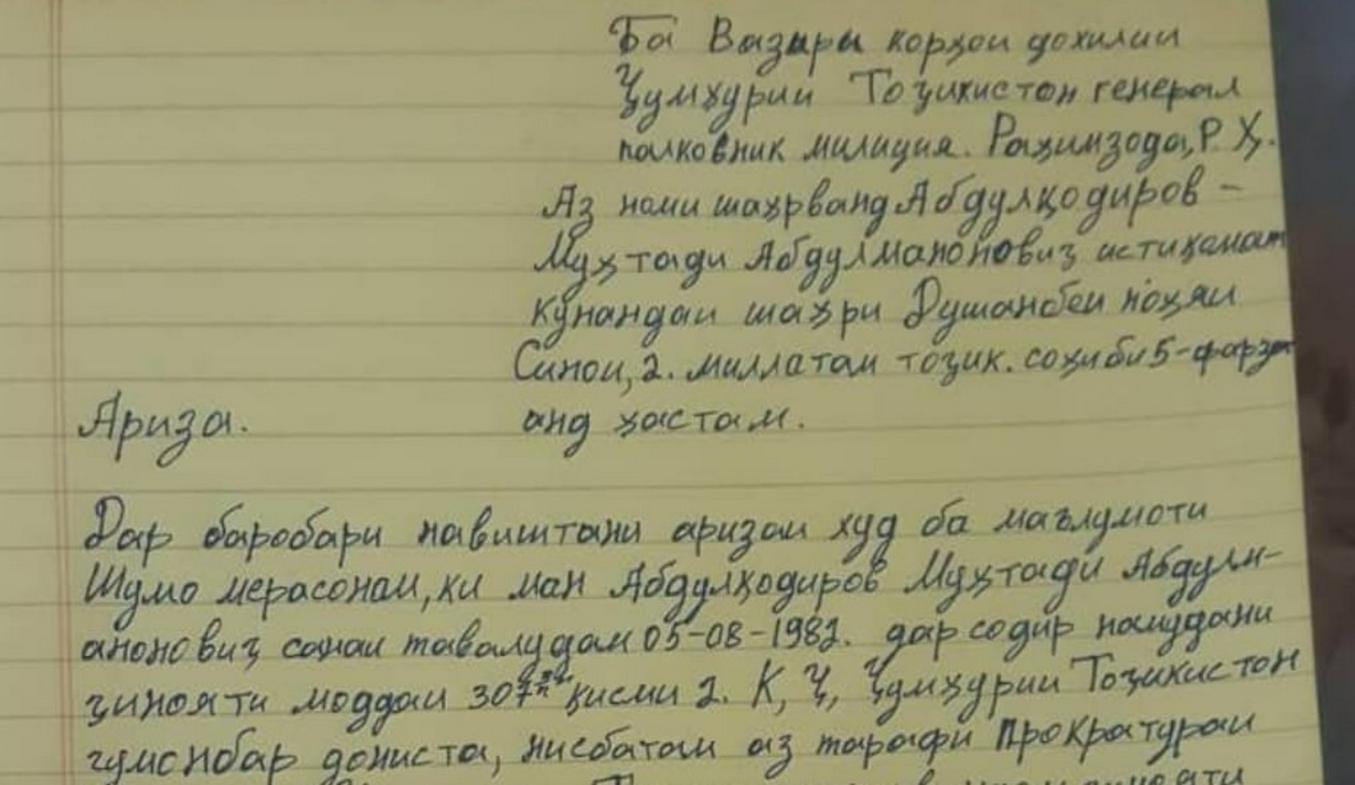 Ба Вазири корҳои дохилии
Ҷумҳурии Тоҷикистон генерал
палковник милиция. Раҳимзода, Р. Ҳ.
Аз номи шаҳрванд Абдулқодиров -
Муҳтади Абдулманонович истиқомат
кунандаи шаҳри Душанбеи ноҳяи
Синои, 2. миллатам тоҷик. соҳиби 5-фарз
анд ҳастам.
Ариза.
Дар баробари навиштани аризаи худ ба маълумоти
Шумо мерасонам, ки ман Абдулқодиров Муҳтади Абдулм-
анонович санаи таваллудам 05-08-1982. дар содир намудани
ҷинояти моддаи 307 қисми 2. К, Ҷ, Ҷумҳурии Тоҷикистон
гумонбар дониста, нисбатам аз тарафи прократураи